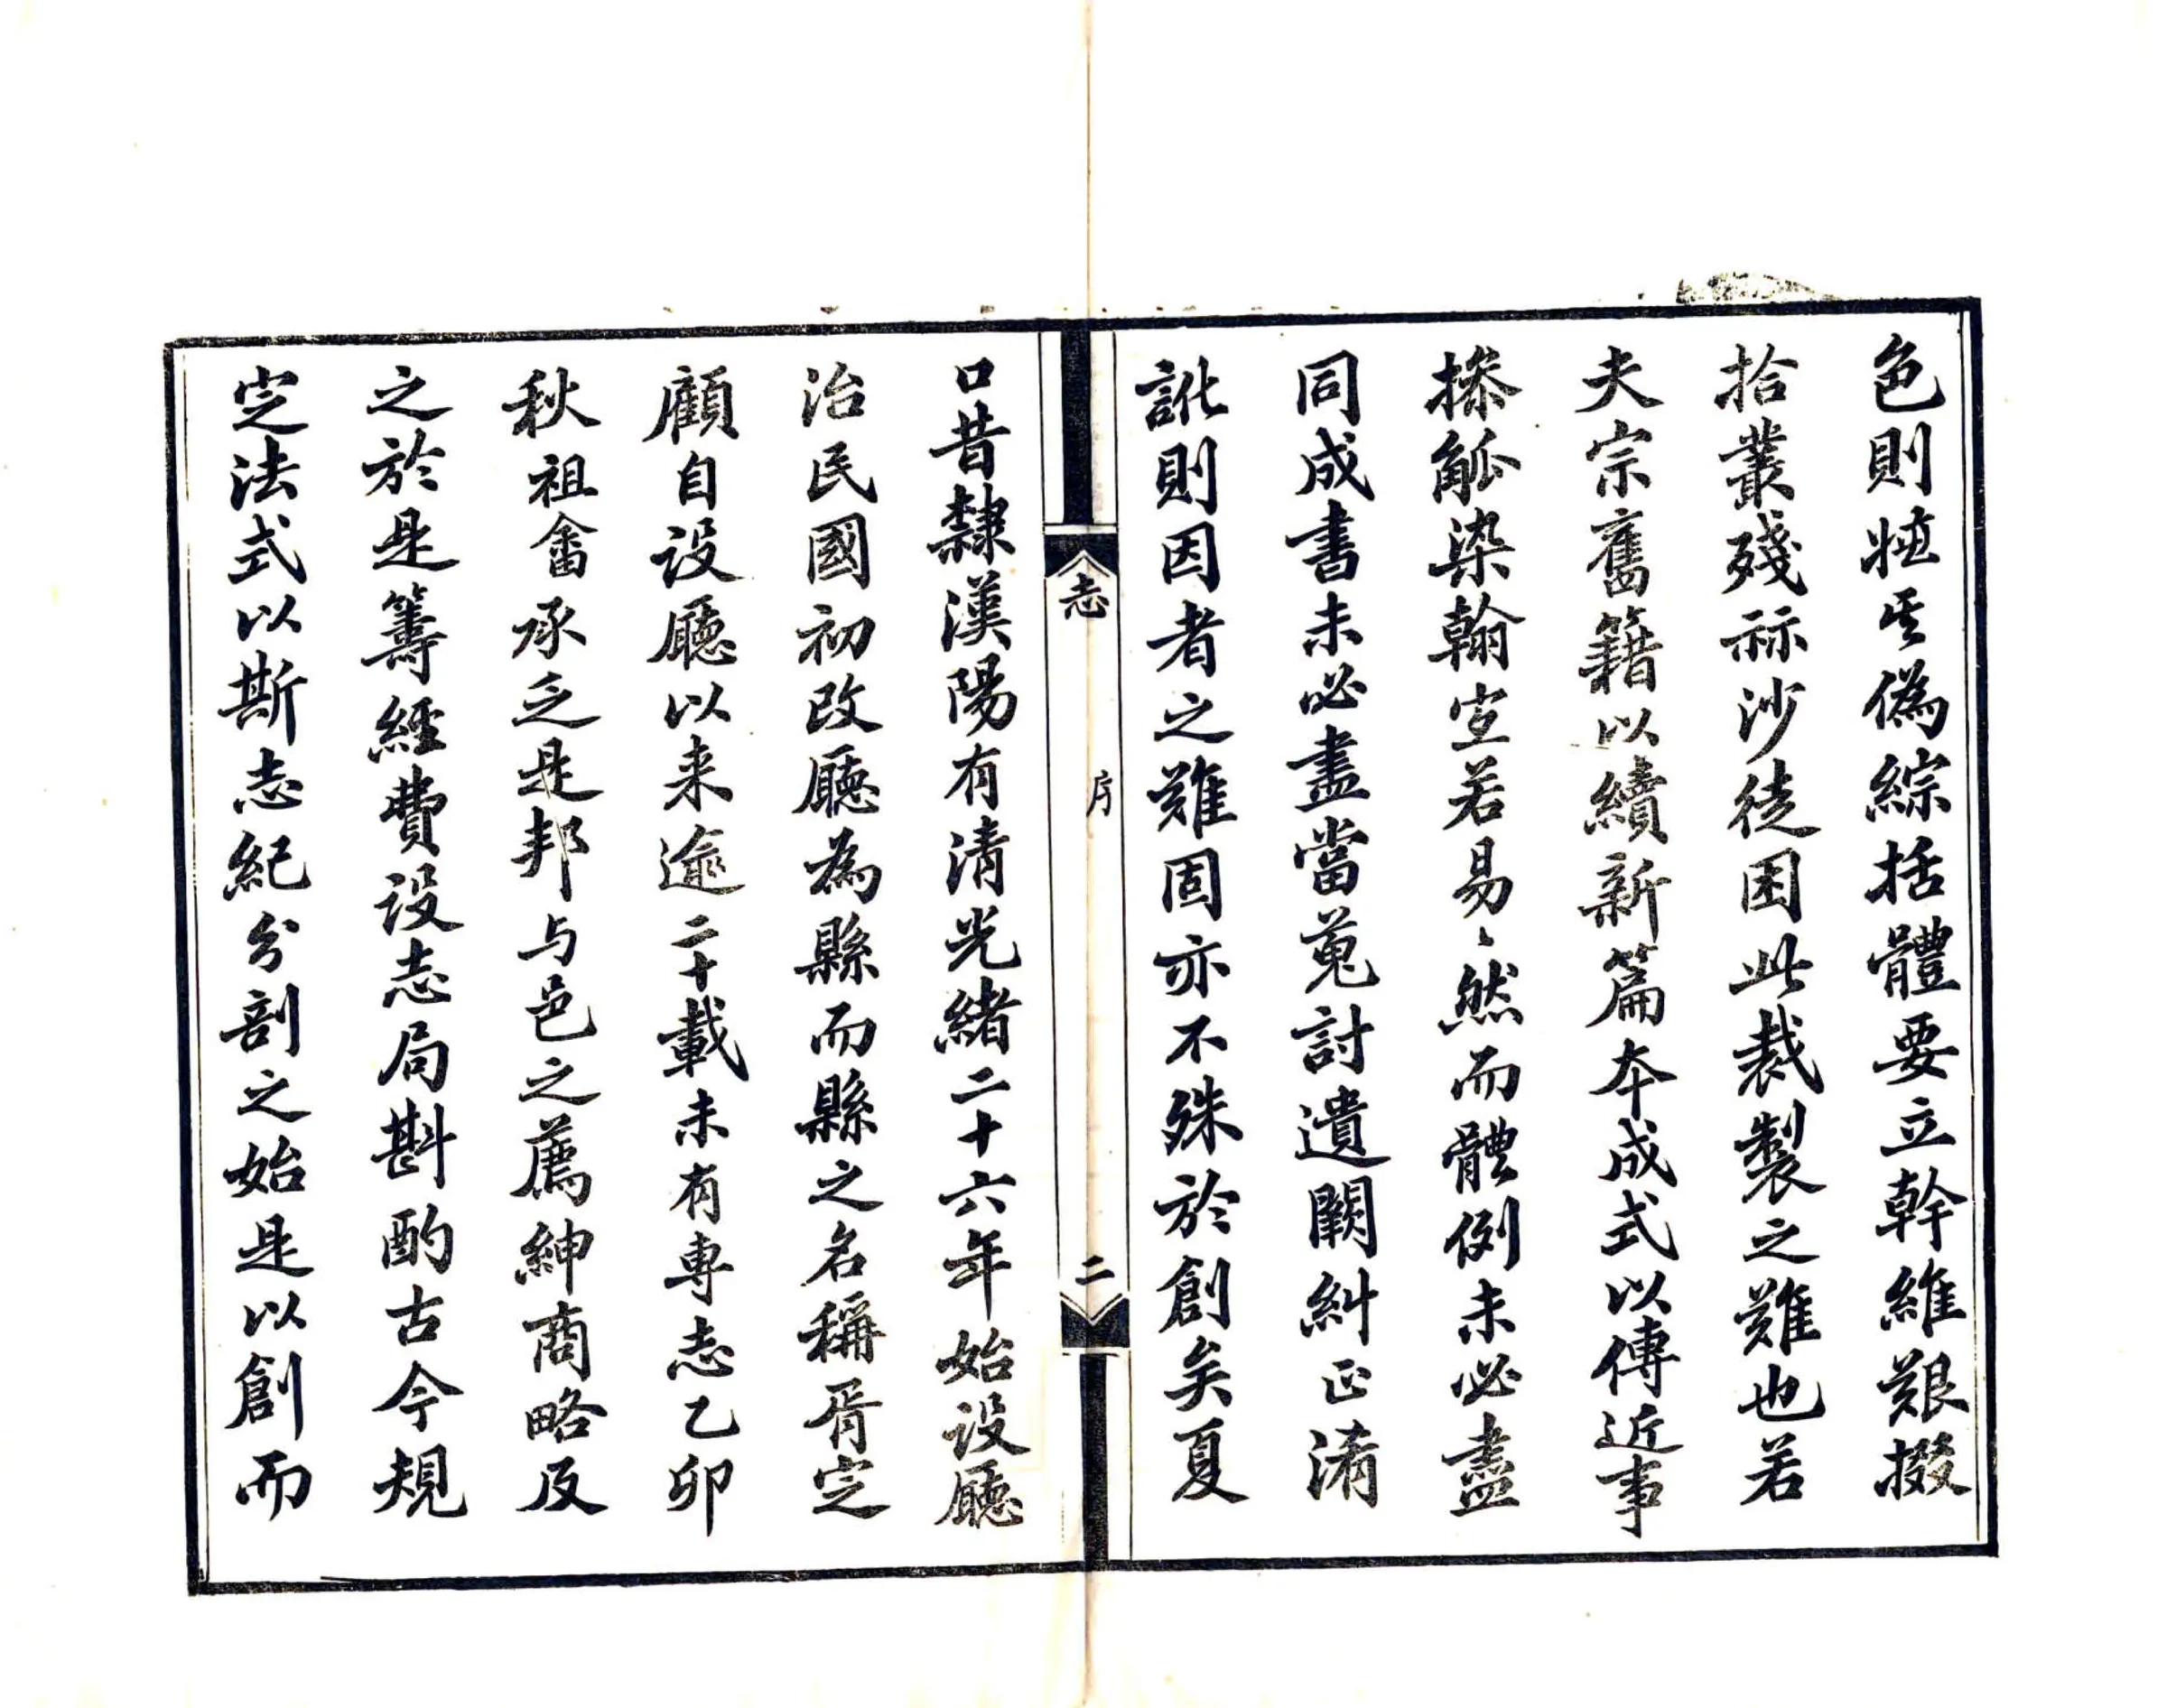 色則牴牾偽綜括體要立幹維艱掇
拾叢殘祘沙徒困此裁製之難也若
夫宗舊籍以續新篇本成式以傳近事
搽觚染翰宜若易〻然而體例未必盡
同成書未必盡當蒐討遺闕糾正淆
訛則因者之難固亦不殊於創矣夏
志
序
二
口昔隸漢陽有清光緒二十六年始設廳
治民國初改廳為縣而縣之名稱胥定
顧自設廳以来逾二十載未有專志乙卯
秋祖畬承乏是邦与邑之薦紳商略及
之於是籌經費設志局斟酌古今規
定法式以斯志紀分剖之始是以創而